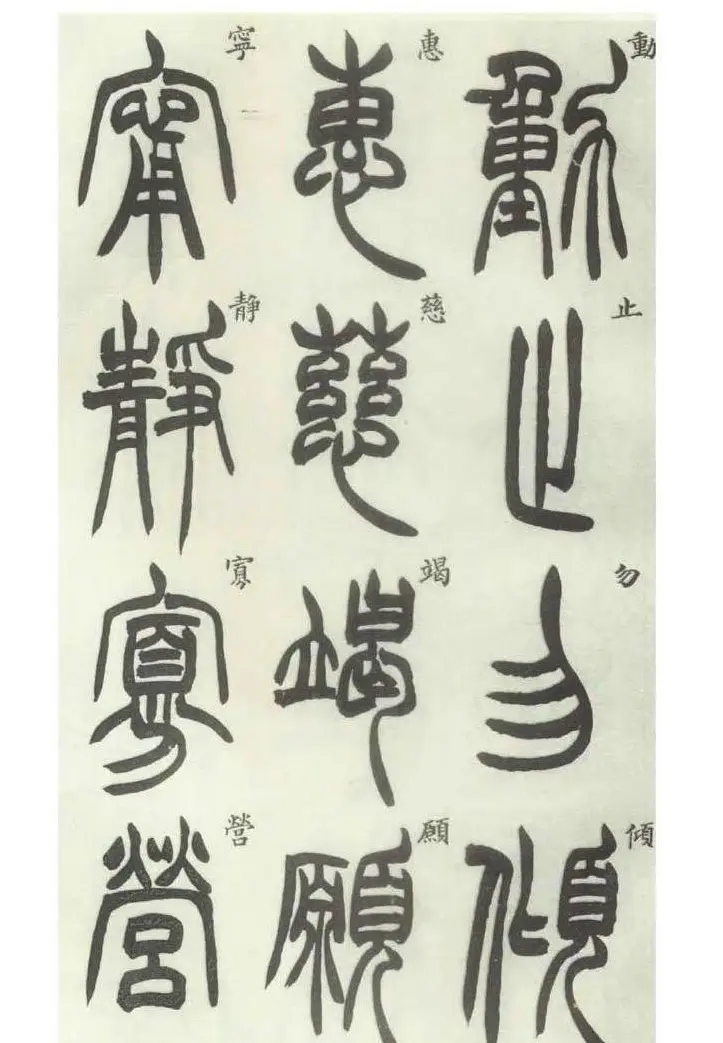 動止勿傾
惠慈竭願
寧靜寡營